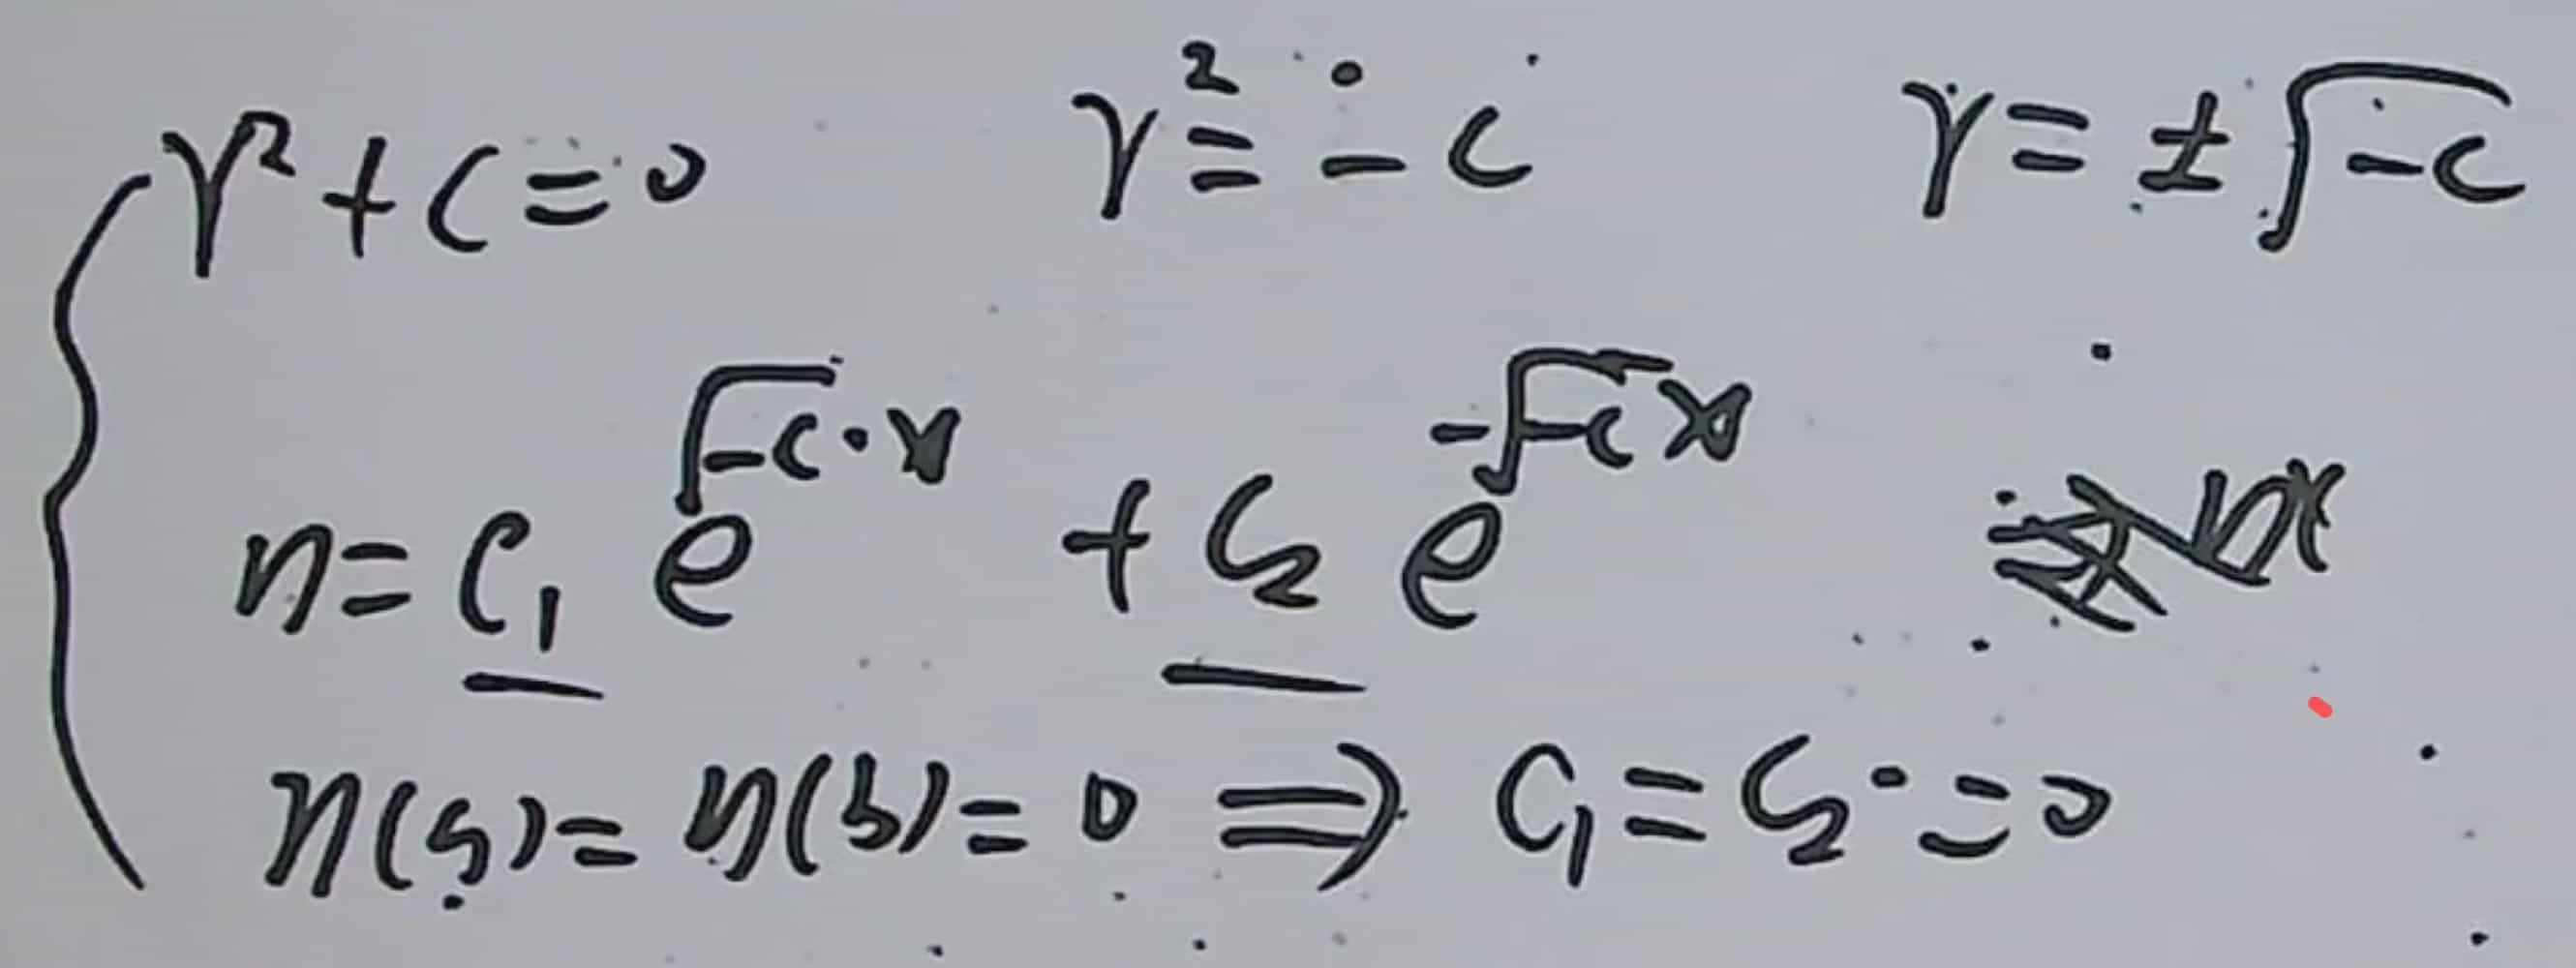 γ² + c = 0 γ² = - c γ = ± √-c
n = C₁ e^{√-c · x} + C₂ e^{-√-c x}
n(a) = n(b) = 0 ⇒ C₁ = C₂ = 0